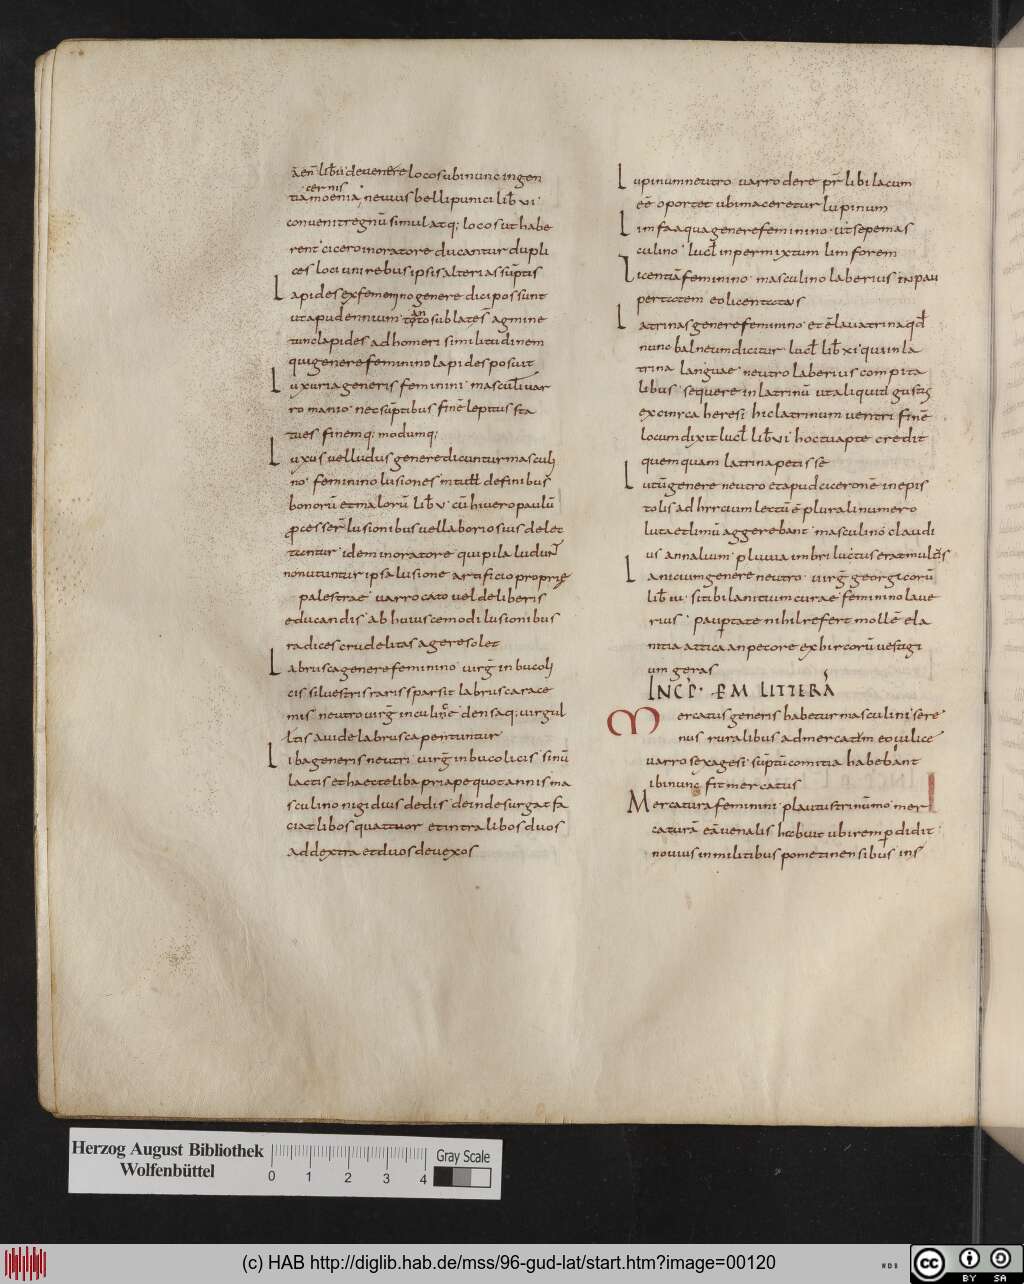 aeñ lib̄ ii devenere locos ubi nunc ingen
cernis
tia moenia nevius belli punici lib̄ vi
convenit regnū simul atq; locos ut habe
rent cicero in oratore ducantur dupli
ces loci uni rebus ipsis alteri assūptis
Lapides ex femenino genere dici possunt
ut apud ennium tanto sublatęs agmine
tunc lapides ad homeri similitudinem
qui genere feminino lapides posuit
Luxuria generis feminini masculi var
ro manio nec sūptibus finē lepitus sta
tues finemq; modumq;
Luxus vel ludus genere dicuntur masculi
no feminino lusiones m tull de finibus
bonorū et malorū lib̄ v cū hi vero paulū
ꝓcesser̄ lusionibus vel laboriosius delec
tuntur idem in oratore qui pila ludunt
non utuntur ipsa lusione artificio proprię
palestrae varro cato vel de liberis
educandis ab huiuscemodi lusionibus
radices crudelitas agere solet
Labrusca genere feminino virḡ in bucoli
cis silvestris raris sparsit labrusca race
mis neutro virḡ in culice densaq; virgul
ltis avide labrusca petuntur
Liba generis neutri virḡ in bucolicis sinū
lactis et haec te liba priape quotannis ma
sculino nigidius de dis deinde surgat fa
ciat libos quattuor et intra libos duos
ad dextra et duos devexos
Lupinum neutro varro de re pr̄ libi lacum
eē oportet ubi maceretur lupinum
Limfa aqua genere feminino ut sepe mas
culino lucl in permixtum limforem
Licentiā feminino masculino laberius in pau
pertotem eo licentotus
Latrinas genere feminino et ē lavatrina qđ
nunc balneum dicitur lucl lib̄ xi qui in la
trina languae neutro laberius compita
libus sequere in latrinū ut aliquid gustes
ex cinrca heresi hic latrinum ventri finē
locum dixit lucl lib̄ vi hoc tu apte credit
quemquam latrina petisse
Lutū genere neutro et apud ciceronē in epis
tolis ad hrrcium lectū ē plurali numero
luta et limū aggerebant masculino claudi
us annalium pluvia imbri luctus erat multus
Lanicium genere neutro virḡ georgicorū
lib̄ iii si tibi lanitium curae feminino lave
rius pauptate nihil refert mollē ela
nitia attica an pecore ex hircorū vestigi
um geras
INCP̄. P̄ M LITTERĀ
Mercatus generis habetur masculini sere
nus ruralibus ad mercatum eo vilice
varro sexagesi sūptū comitia habebant
ibi nunc fit mercatus
Mercatura feminini plautus trinūmo mer
caturā eā venalis habuit ubi rem ꝓdidit
novius in militibus pometinensibus ins
Herzog August Bibliothek
Wolfenbüttel
0 1 2 3 4
Gray Scale
(c) HAB http://diglib.hab.de/mss/96-gud-lat/start.htm?image=00120
WDB
cc BY SA